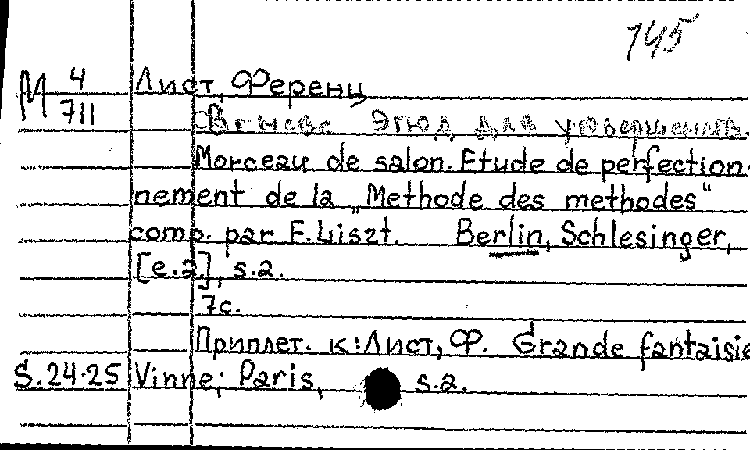 145
М 4/711 Лист, Ференц
Этюд для
Morceau de salon. Etude de perfection-
nement de la „Methode des methodes"
comp. par F. Liszt. Berlin, Schlesinger,
[e.a], s.a.
7с.
Приплет. к: Лист, Ф. Grande fantaisie
S.24-25 Vinne; Paris, s.a.